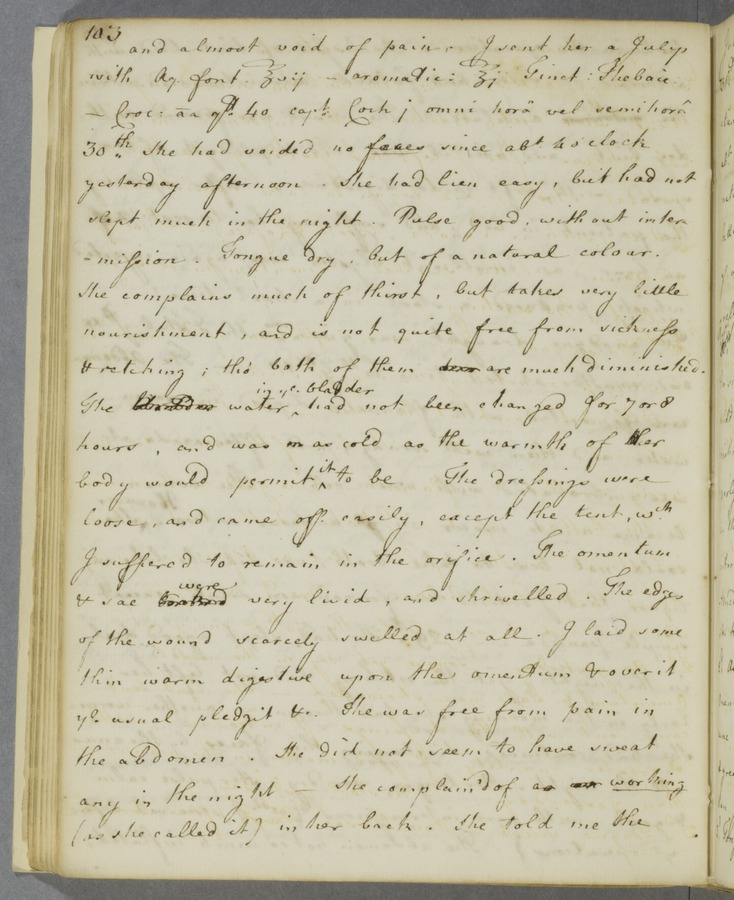 103
and almost void of pain. I sent her a Julep
with Aq. font. ʒvij – aromatic: ʒj Tinct: Thebaic
– Croc: aa gtt 40 capt. Coch j omni horâ vel semihorâ
30th. She had voided no faeces since abt. 4 o'clock
yesterday afternoon. She had lien easy, but had not
slept much in the night. Pulse good, without inter-
-mission. Tongue dry, but of a natural colour.
She complains much of thirst, but takes very little
nourishment, and is not quite free from sickness
& retching; tho' both of them are much diminished.
in ye. bladder
The water ^ had not been changed for 7 or 8
hours, and was as cold as the warmth of her
it
body would permit ^ to be The dressings were
loose, and came off easily, except the tent, wch
I suffered to remain in the orifice. The omentum
were
& sac very livid, and shrivelled. The edges
of the wound scarcely swelled at all. I laid some
thin warm digestive upon the omentum & over it
ye. usual pledgit &c. She was free from pain in
the abdomen. She did not seem to have sweat
any in the night – She complain'd of a working
(as she called it) in her back. She told me the